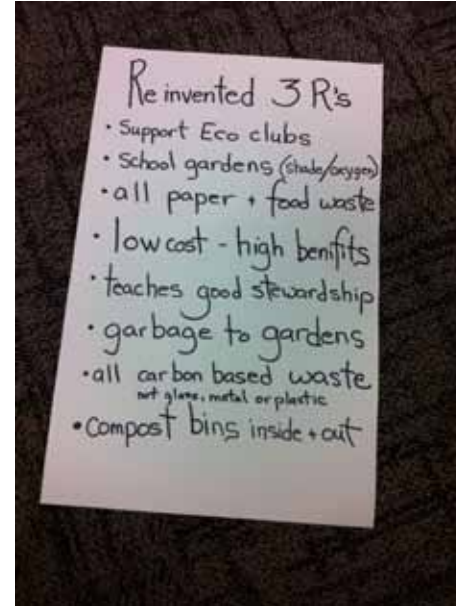 Reinvented 3 R's
• Support Eco clubs
• School gardens (shade/oxygen)
• all paper + food waste
• low cost - high benifits
• teaches good stewardship
• garbage to gardens
• all carbon based waste
not glass, metal or plastic
• Compost bins inside + out